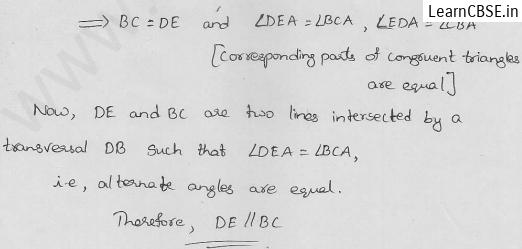 LearnCBSE.in
⟹ BC = DE and ∠DEA = ∠BCA , ∠EDA = ∠CBA
[Corresponding parts of congruent triangles
are equal]
Now, DE and BC are two lines intersected by a
transversal DB such that ∠DEA = ∠BCA,
i.e, alternate angles are equal.
Therefore, DE // BC